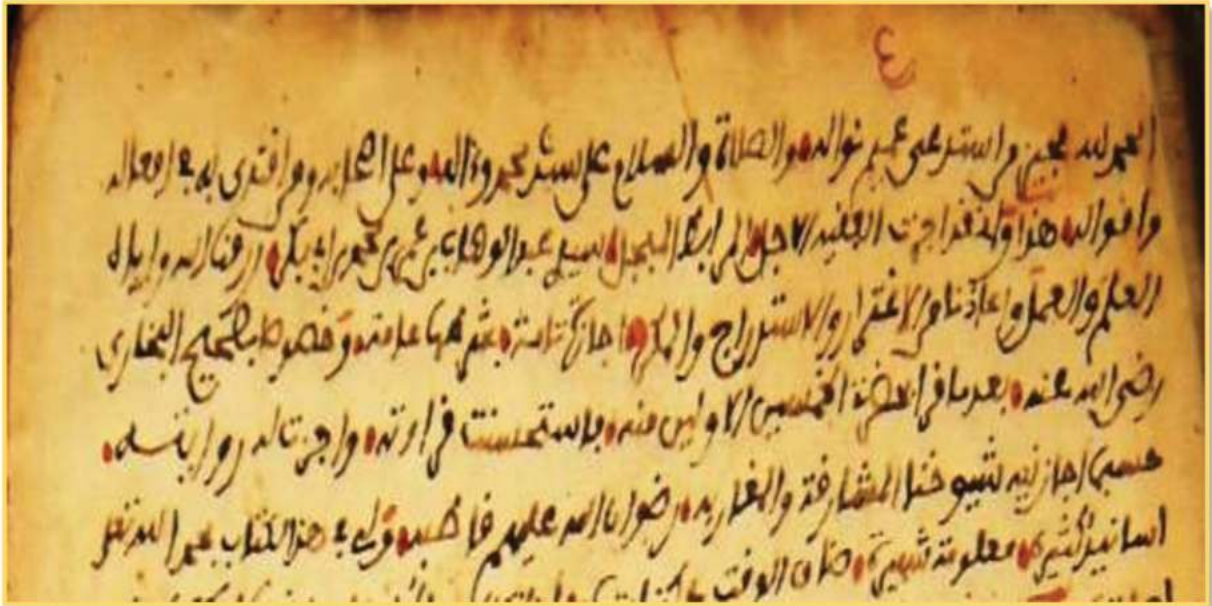 ٤
الحمد لله مجيز من استدعى عميم نواله والصلاة والسلام على سيدنا محمد وءاله وعلى اصحابه ومن اقتدى به في افعاله
واقواله هذا وانه قد اجزت الفقيه الاجل المرابط المبجل سيدي عبد الوهاب بن محمد بن ابي بكر رزقنا الله واياه
العلم والعمل واعاذنا من الاغترار والاستدراج والمكر اجازة تامة بشرطها عامة وخصوصا بصحيح البخاري
رضي الله عنه بعد ما قرا بعض الخمسين الاولين منه فاستحسنت قراءته واجزت له روايته
حسبما اجازنيه شيوخنا المشارقة والمغاربة رضوان الله عليهم قاطبة ولي في هذا الكتاب بحمد الله تعلى
اسانيد كثيرة معلومة شهيرة ضاق الوقت